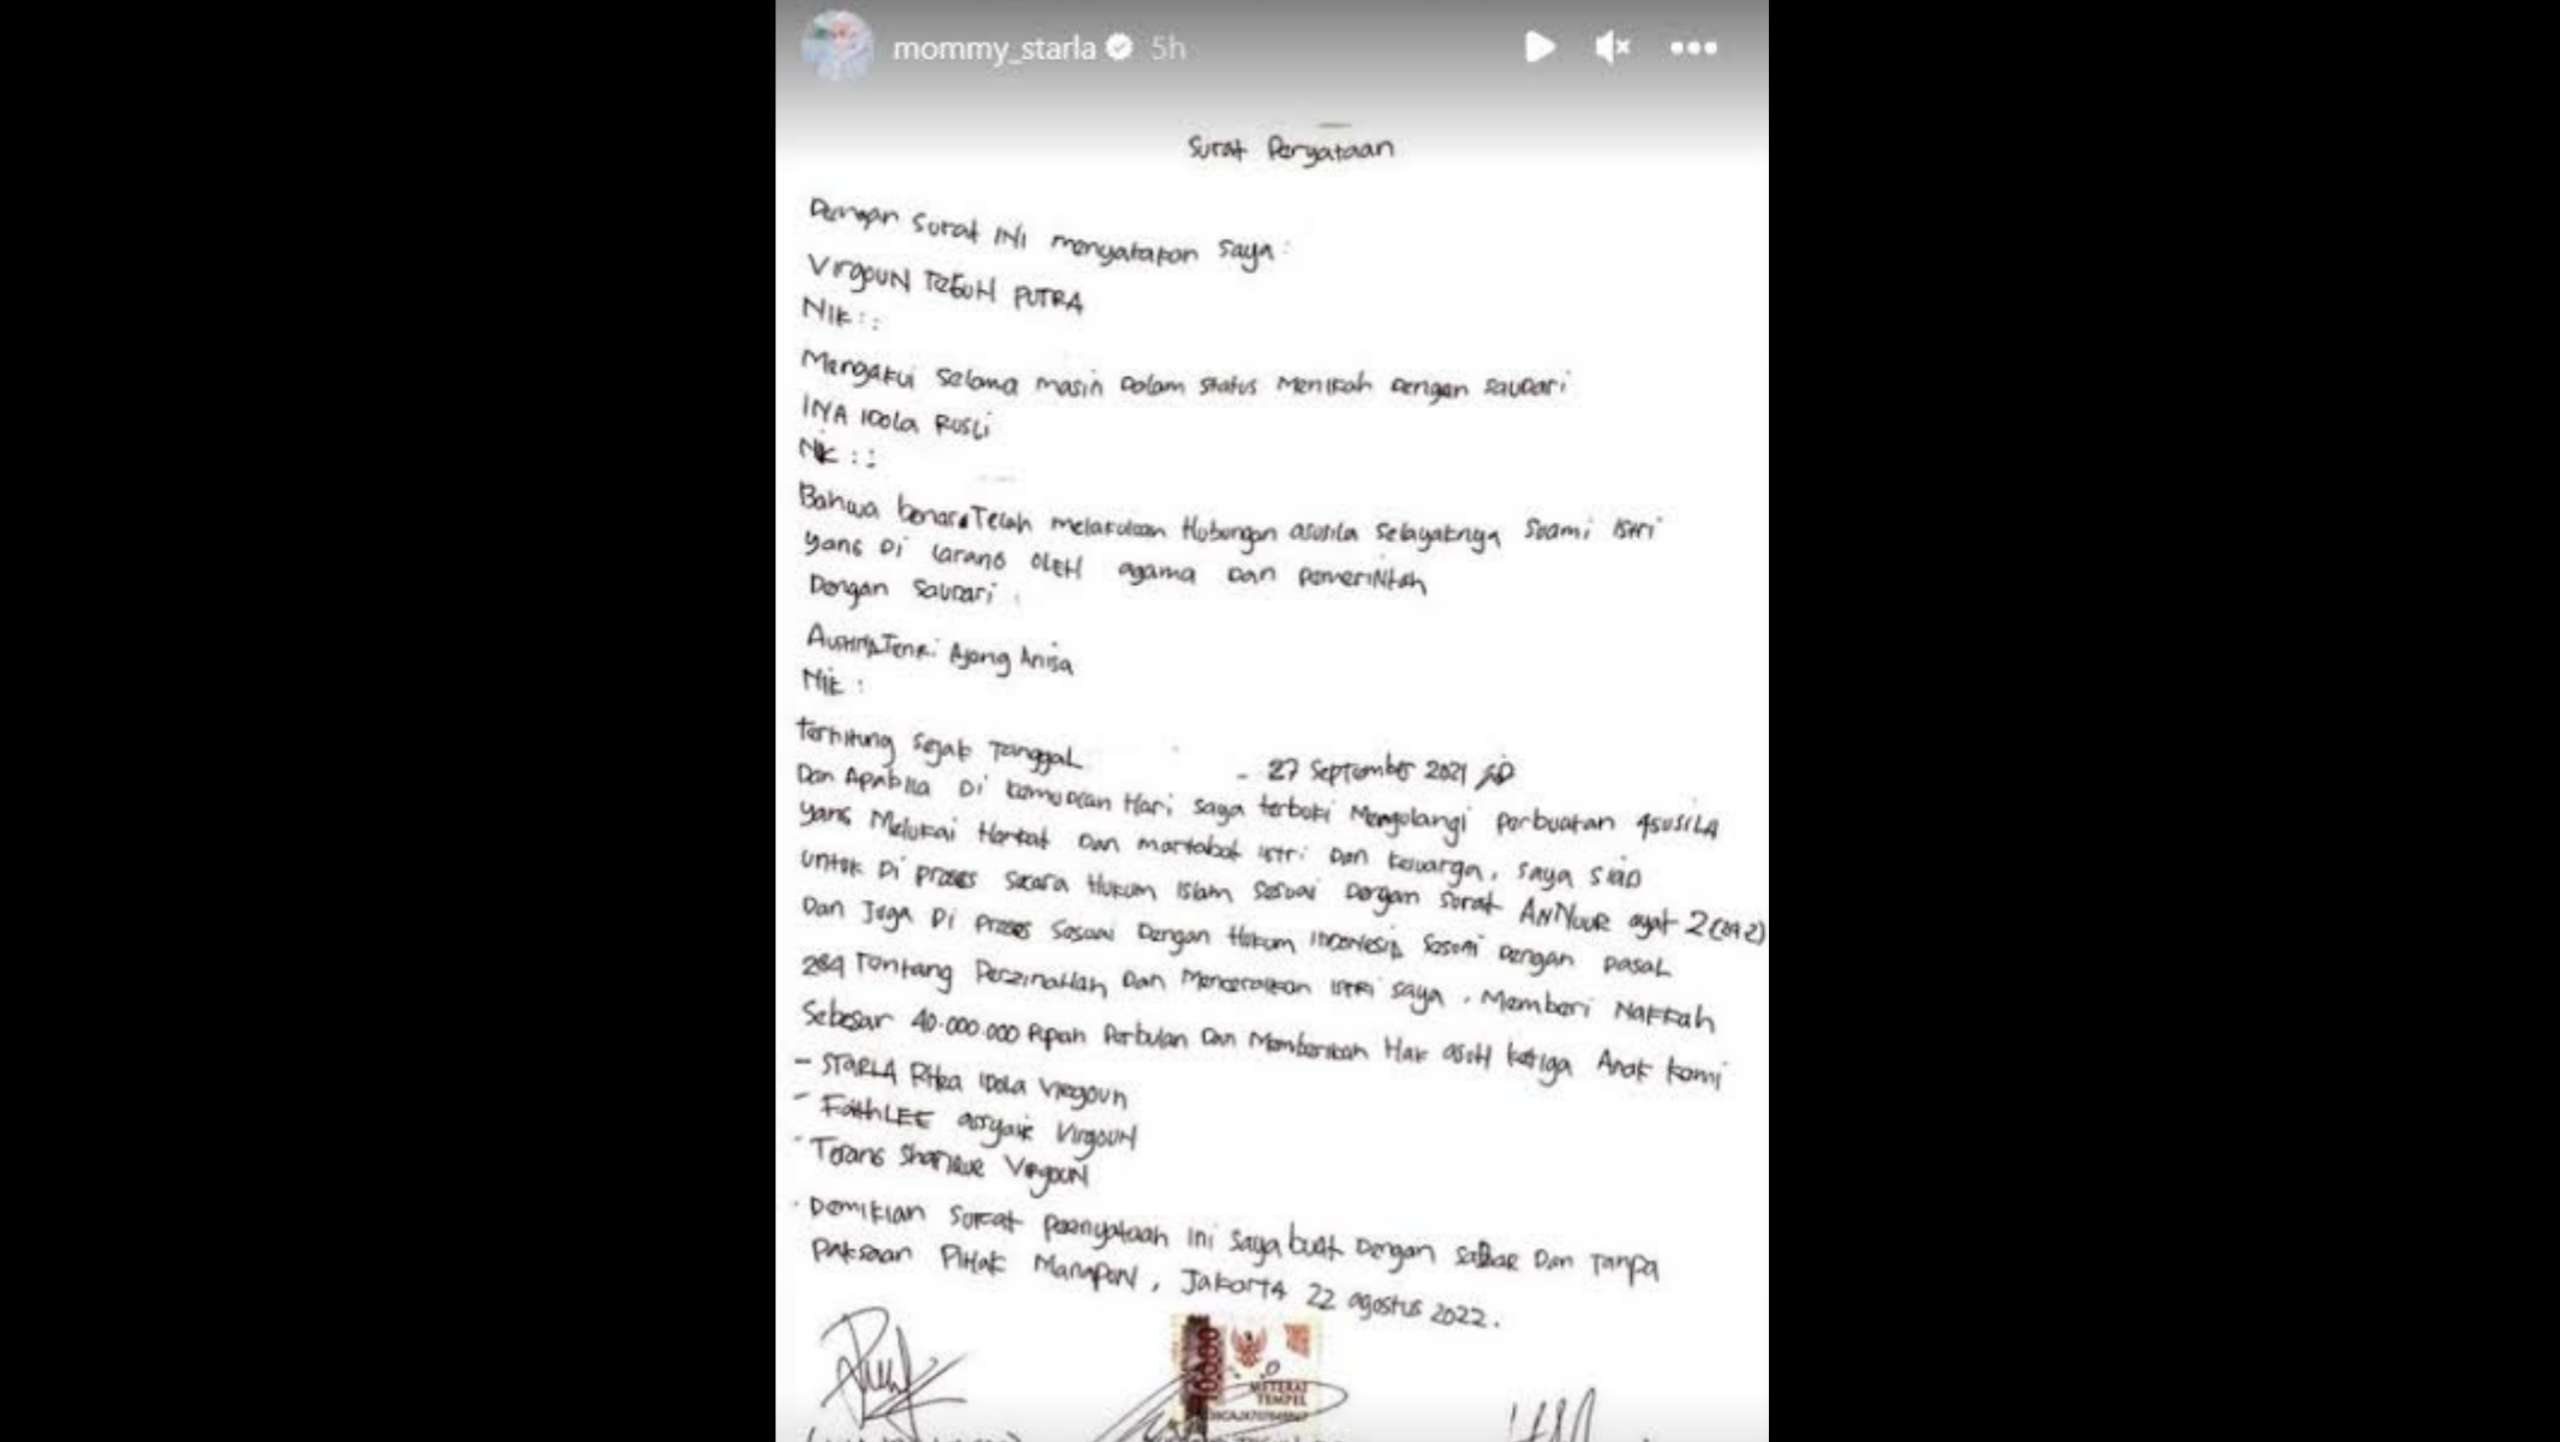 mommy_starla 5h
Surat Peryataan
Dengan Surat INI menyatakan Saya :
VIrgoUN TEGUH PUTRA
NIK : :
Mengakui Selama masih Dalam status Menikah Dengan Saudari
INA IDola RUSLi
NIK : :
Bahwa benar Telah melakukan Hubungan asusila Selayaknya Suami Istri
yang Di larang OLEH agama Dan PemeriNtah
Dengan Saudari :
Tenri Ajeng Anisa
NIK :
terhitung Sejak TanggaL
- 27 September 2021
Dan Apabila Di kemudian Hari saya terbukti Mengulangi Perbuatan ASUSILA
yang Melukai Harkat Dan martabat istri Dan keluarga, Saya Siap
untuk Di proses Secara Hukum Islam Sesuai Dengan Surat ANNUUR ayat 2
Dan Juga Di Proses Sesuai Dengan Hukum INDONesia Sesuai Dengan PasaL
284 Tentang PerzinaHan Dan Menceraikan istRi Saya, Memberi Nafkah
Sebesar 40.000.000 Rupiah Perbulan Dan Memberikan Hak asuH ketiga Anak kami
- STARLA RHea IDola VIRgoun
- FaithLEE arsyaik VIrgouN
- Terang Sharique VIRgouN
- Demikian Surat Peenyataan Ini Saya buat Dengan saDaR Dan Tanpa
Paksaan PIHak ManapuN, JakartA 22 agostus 2022.
10000
METERAI
TEMPEL